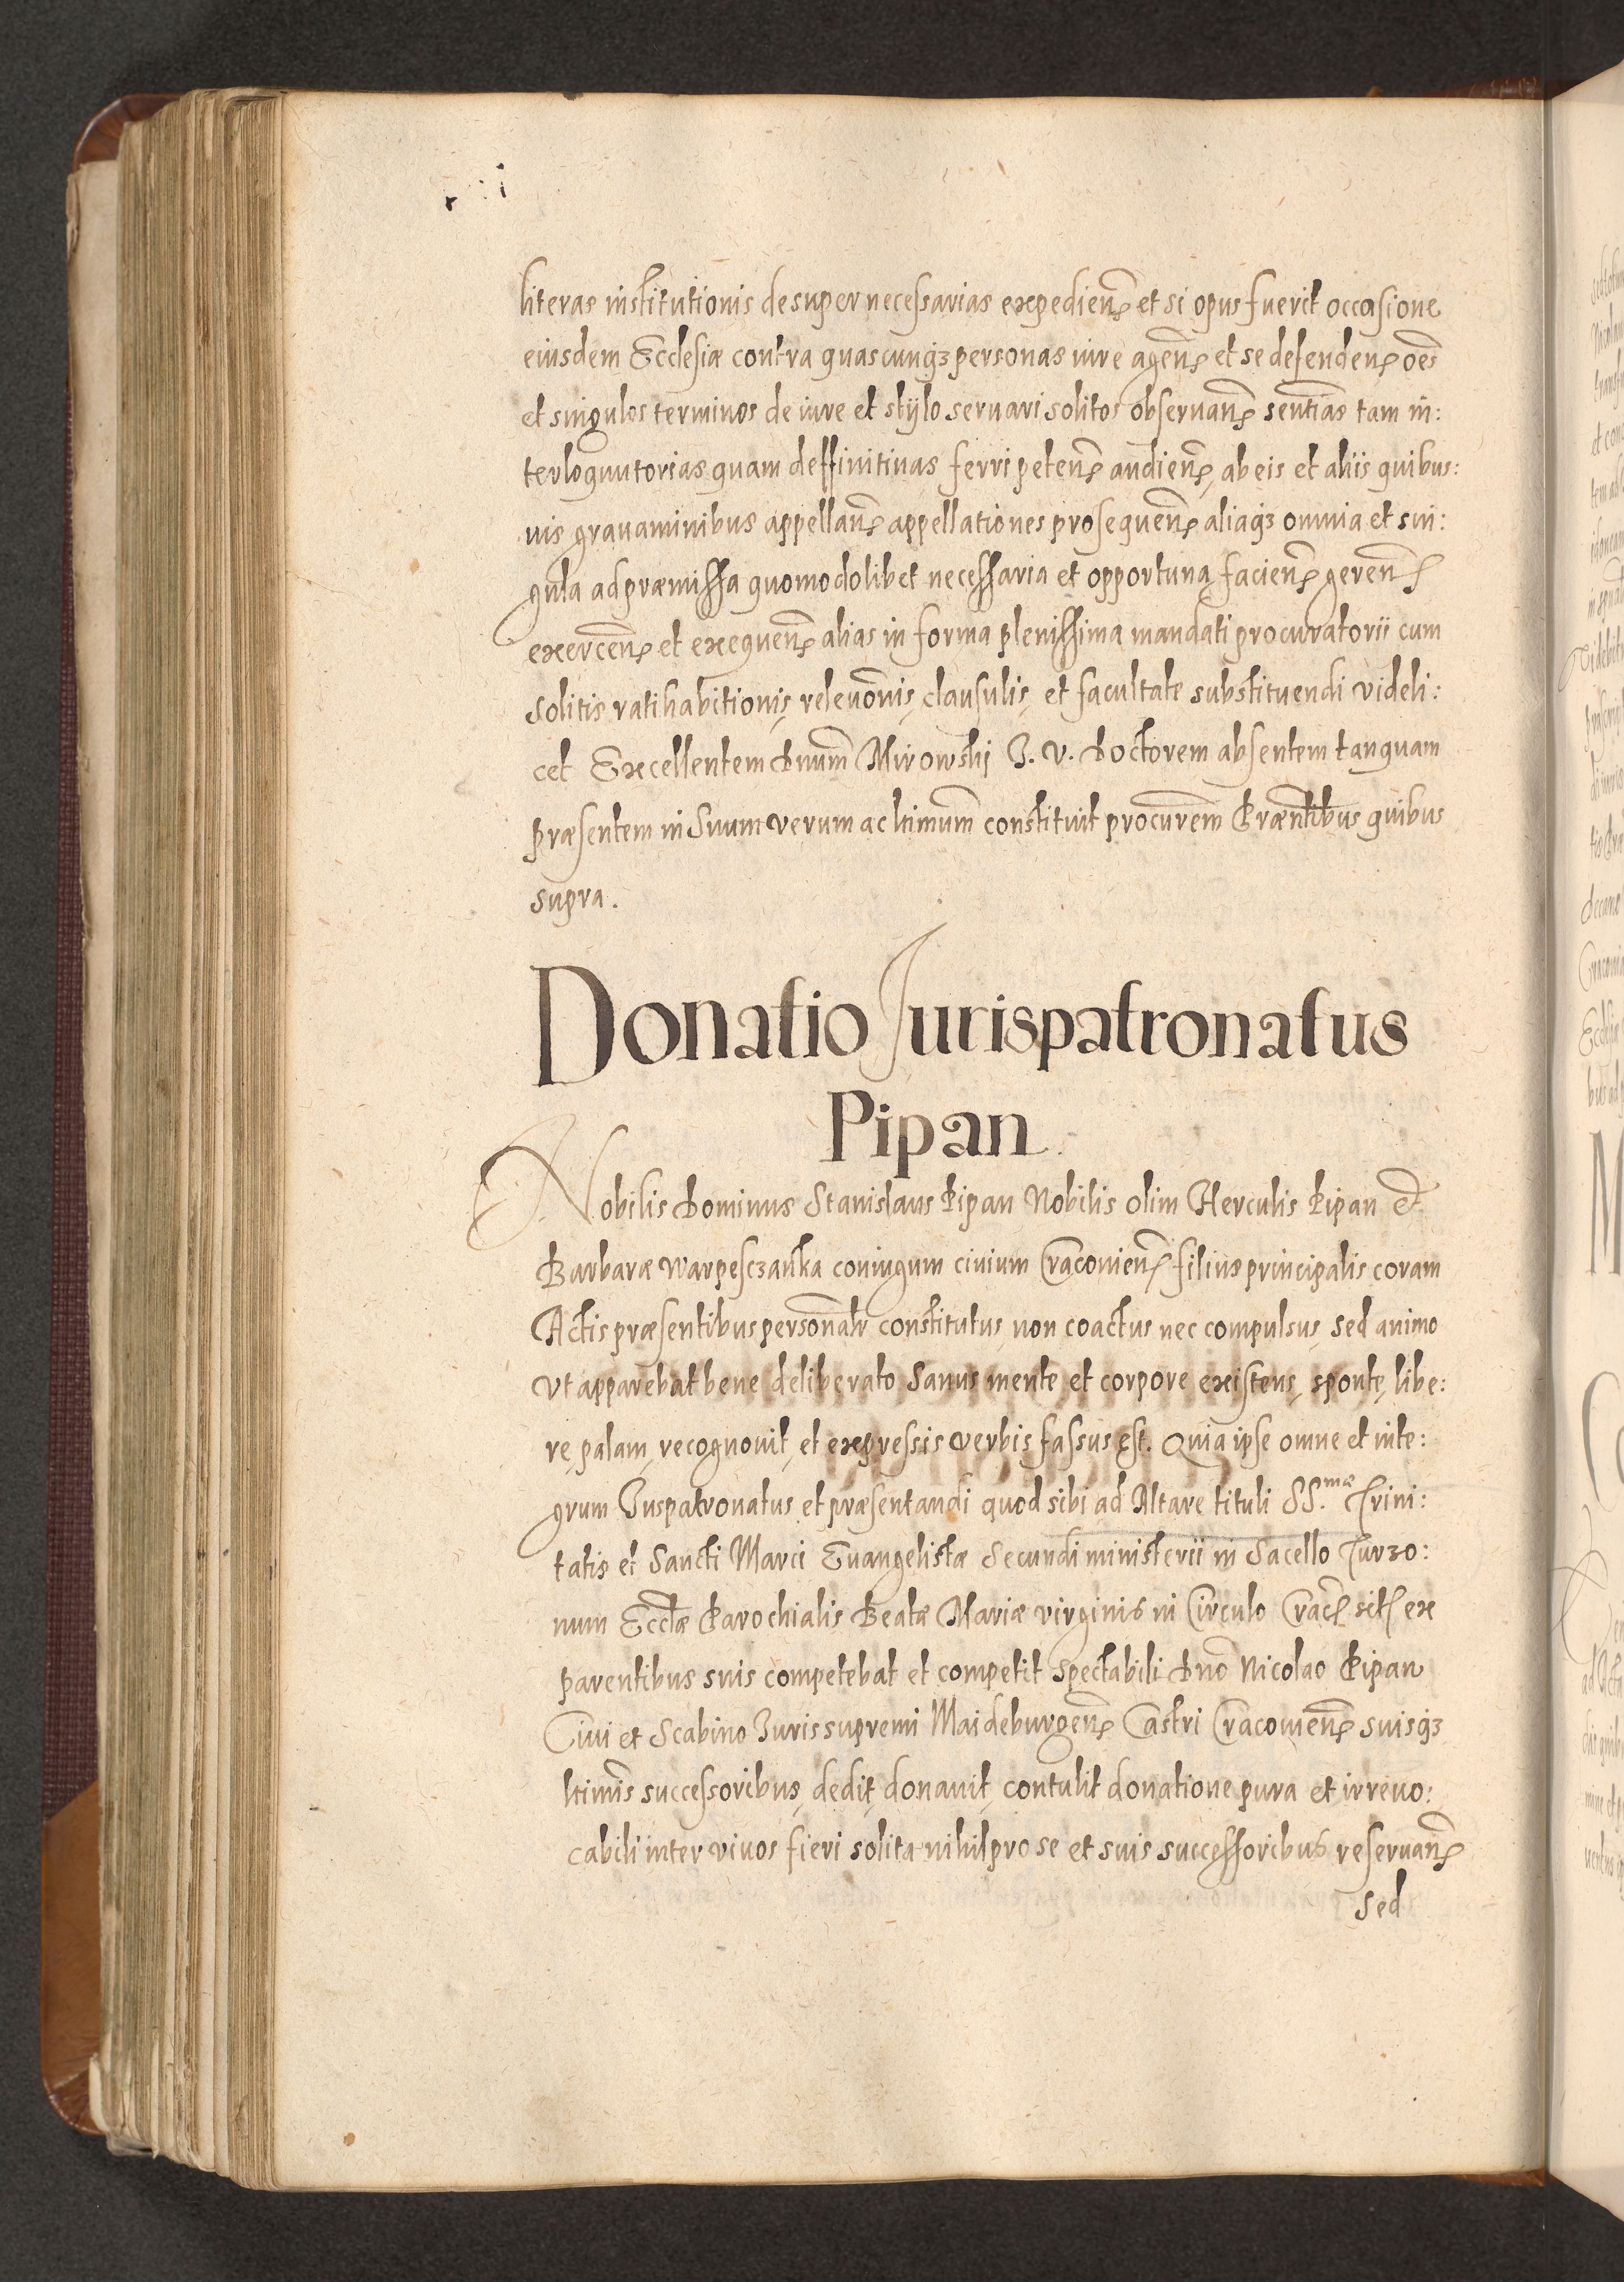 literas institutionis desuper necessarias expedienꝭ et si opus fuerit occasione
eiusdem Ecclesiæ contra quascunqꝫ personas iure agenꝭ et se defendenꝭ oe͞s
et singulos terminos de iure et stylo seruari solitos obseruanꝭ sent͞ias tam in:
terloquutorias quam deffinitiuas ferri petenꝭ audienꝭ, ab eis et aliis quibus:
uis grauaminibus appellanꝭ appellationes prosequenꝭ aliaqꝫ omnia et sin:
gula ad præmissa quomodolibet necessaria et opportuna, facienꝭ gerenꝭ
exercenꝭ et exequenꝭ alias in forma plenissima mandati procuratorii cum
solitis ratihabitionis, releuo͞nis, clausulis, et facultate substituendi videli:
cet Excellentem Dnu͞m Mirowskj J. V. Doctorem absentem tanquam
præsentem in Suum verum ac ltimu͞m constituit procure͞m Præntibus quibus
supra.
Donatio Jurispatronatus
Pipan
Nobilis Dominus Stanislaus Pipan Nobilis olim Herculis Pipan et
Barbaræ Warpesczanka coniugum ciuium Cracouienꝭ filius principalis coram
Actis præsentibus persona͞lr constitutus, non coactus nec compulsus, sed animo
vt apparebat bene deliberato, sanus mente et corpore existens, sponte, libe:
re, palam, recognouit, et expressis verbis fassus est. Quia ipse omne et inte:
grum Juspatronatus et præsentandi quod sibi ad Altare tituli SS.mæ Trini:
tatis et Sancti Marci Euangelistæ Secundi ministerii in Sacello Turzo:
num Eccl͞æ Parochialis Beatæ Mariæ virginis in Circulo Cracꝭ sitꝭ ex
parentibus suis competebat et competit spectabili Dno͞ Nicolao Pipan
Ciui et Scabino Juris supremi Maideburgenꝭ Castri Cracouienꝭ suisqꝫ
ltimi͞s successoribus, dedit, donauit, contulit donatione pura et irreuo:
cabili inter viuos fieri solita nihil pro se et suis successoribus reseruanꝭ
sed